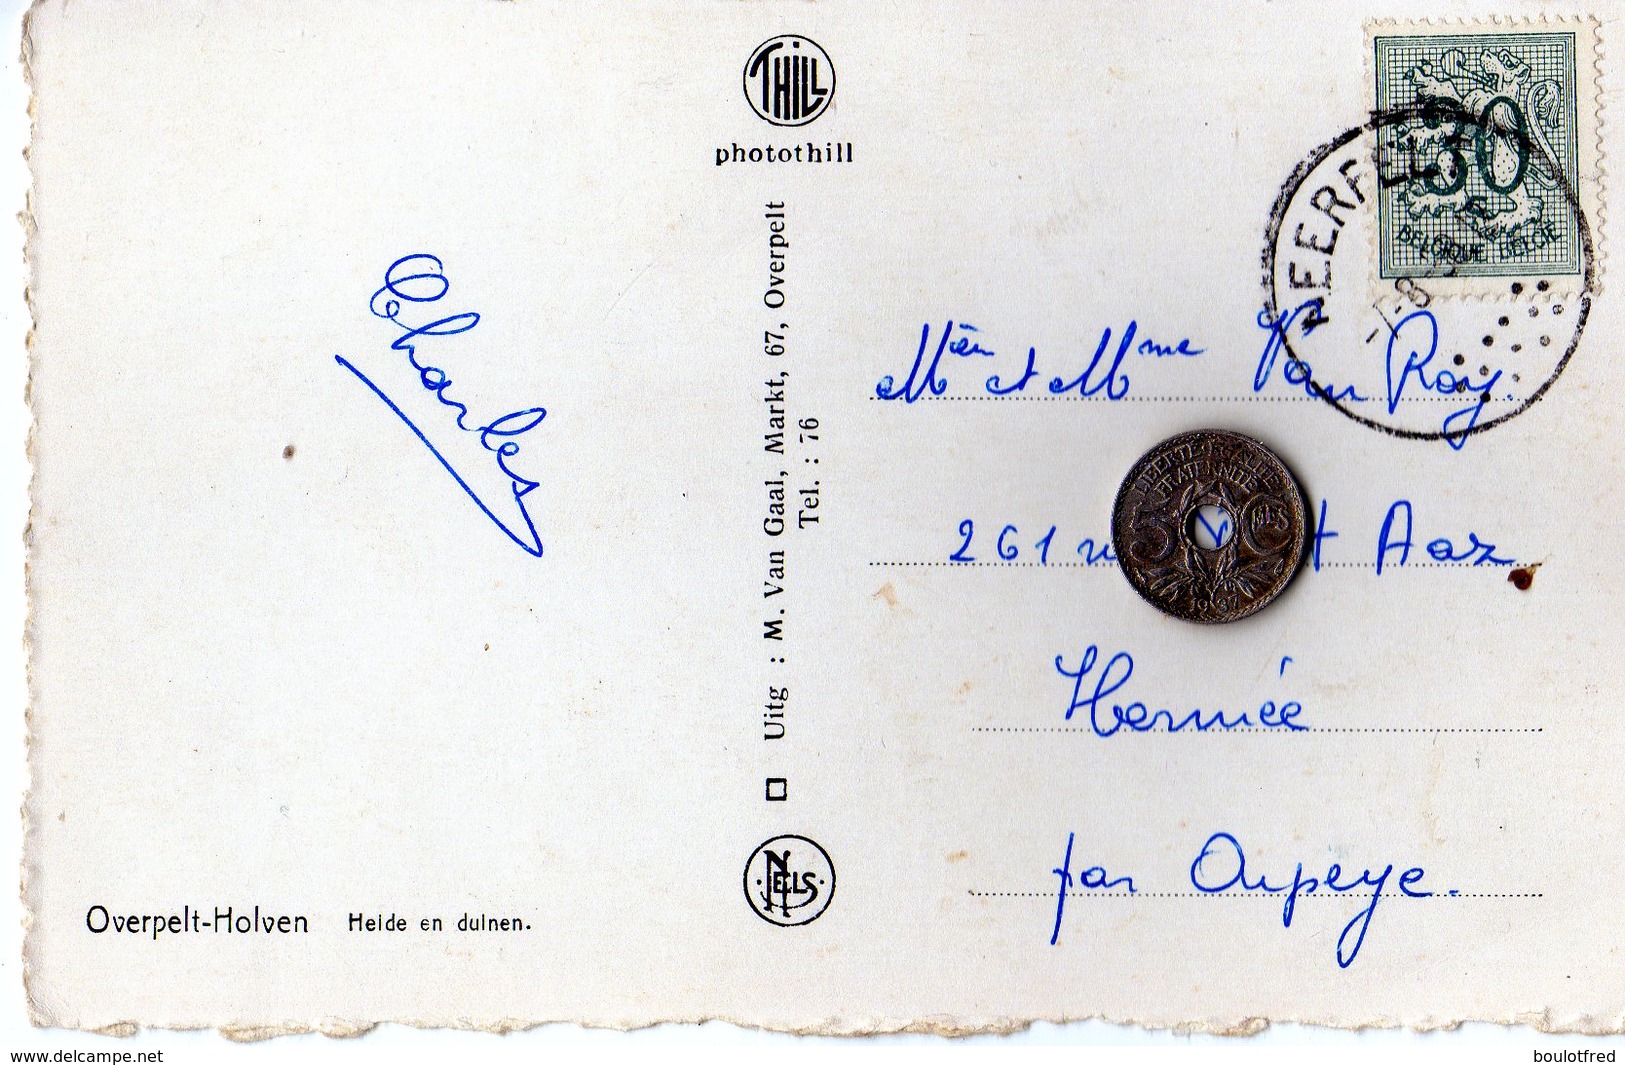 THILL
photothill
Uitg : M. Van Gaal, Markt, 67, Overpelt
Tel. : 76
NELS
Charles
Overpelt-Holven Heide en duinen.
30
BELGIQUE BELGIE
NEERPELT
Mr et Mme Van Roy.
261 Aaz
LIBERTE EGALITE
FRATERNITE
5 CMES
1937
Hermée
par Oupeye.
delcampe.net
boulotfred